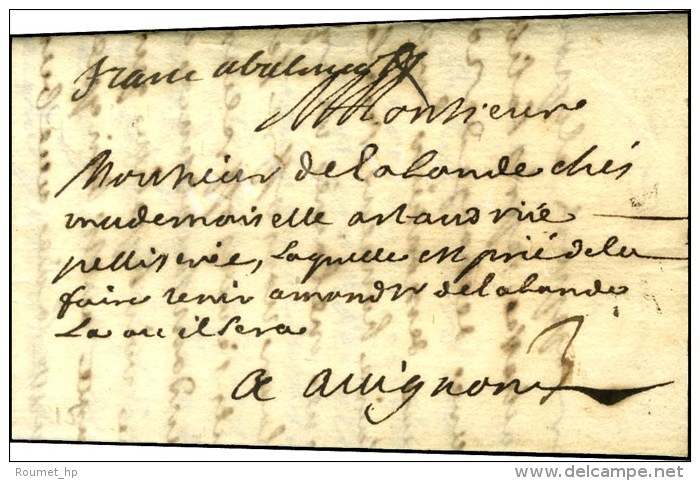 franc
Monsieur
Monsieur delalande chés
mademoiselle artaud rüe
pelliserie, laquelle est prié dela
faire tenir a mondr delalande
La ou il sera
a avignon
Roumet_hp
www.delcampe.net